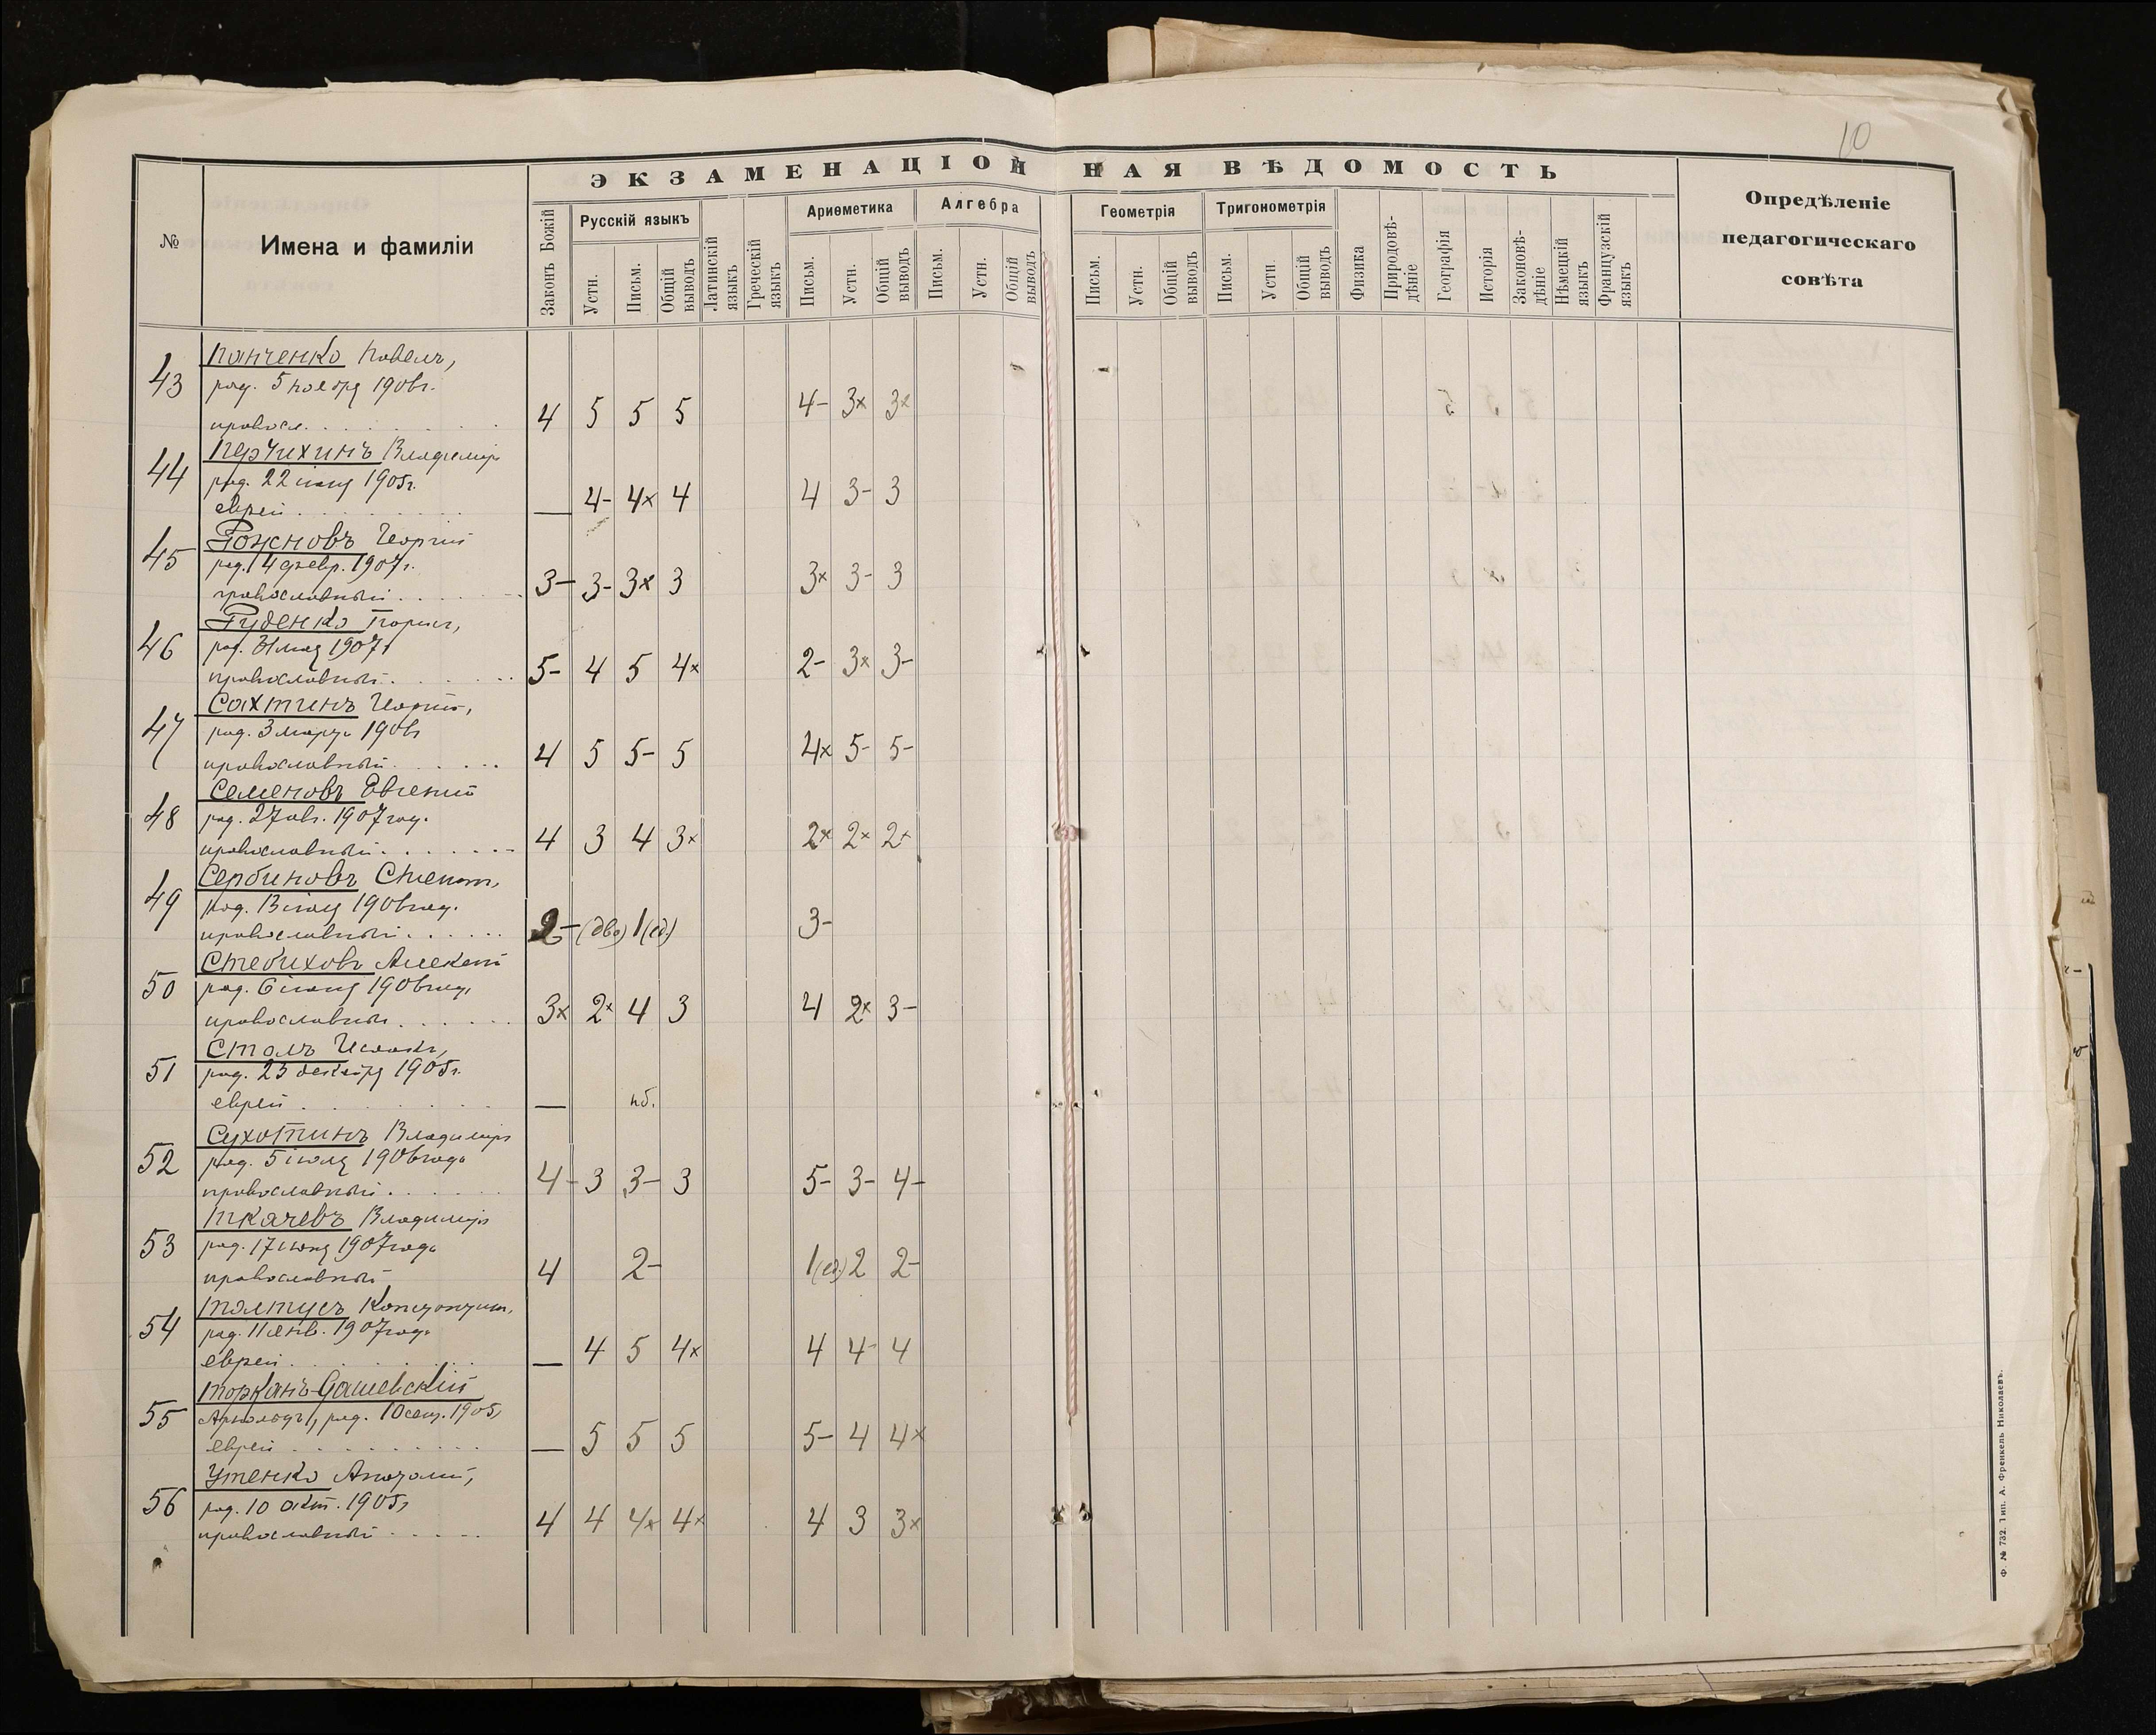 10
ЭКЗАМЕНАЦІОННАЯ ВѢДОМОСТЬ
№
Имена и фамиліи
Законъ Божій
Русскій языкъ
Устн.
Письм.
Общій выводъ
Латинскій языкъ
Греческій языкъ
Ариѳметика
Письм.
Устн.
Общій выводъ
Алгебра
Письм.
Устн.
Общій выводъ
Геометрія
Письм.
Устн.
Общій выводъ
Тригонометрія
Письм.
Устн.
Общій выводъ
Физика
Природовѣ-
дѣніе
Географія
Исторія
Законовѣ-
дѣніе
Нѣмецкій языкъ
Французскій языкъ
Опредѣленіе
педагогическаго
совѣта
43 Панченко Павелъ,
род. 5 ноября 1906г.
правосл. 4 5 5 5 4- 3× 3×
44 Перчихинъ Владимір
род. 22 1905г.
еврей — 4- 4× 4 4 3- 3
45 Рожновъ Георгій
род. 14 февр. 1907г.
православный 3- 3- 3× 3 3× 3- 3
46 Руденко
род. 31 мая 1907г
православный 5- 4 5 4× 2- 3× 3-
47 Сахтинъ Георгій,
род. 3 марта 1906г
православный 4 5 5- 5 4× 5- 5-
48 Семеновъ Евгеній
род. 27 авг. 1907 год.
православный 4 3 4 3× 2× 2× 2×
49 Сербиновъ Степанъ,
род. 13 1906 год.
православный 2- (два) 1 (ед.) 3-
50 Стебиховъ Алексѣй
род. 6 1906 год.
православный 3× 2× 4 3 4 2× 3-
51 Столь Исаакъ,
род. 23 декабря 1905г.
еврей — нб.
52 Сухотинъ Владиміръ
род. 5 1906 года
православный 4- 3 3- 3 5- 3- 4-
53 Ткачевъ Владиміръ
род. 17 1907 года
православный 4 2- 1 (ед.) 2 2-
54 Толтусъ Константин.
род. 11 янв. 1907 года
еврей — 4 5 4× 4 4- 4
55 Торканъ-Дашевскій
Арнольдъ, род. 10 сент. 1905г
еврей — 5 5 5 5- 4 4×
56 Утенко Анатолій,
род. 10 окт. 1905г
православный 4 4 4× 4× 4 3 3×
Ф. № 732. Тип. А. Френкель Николаевъ.